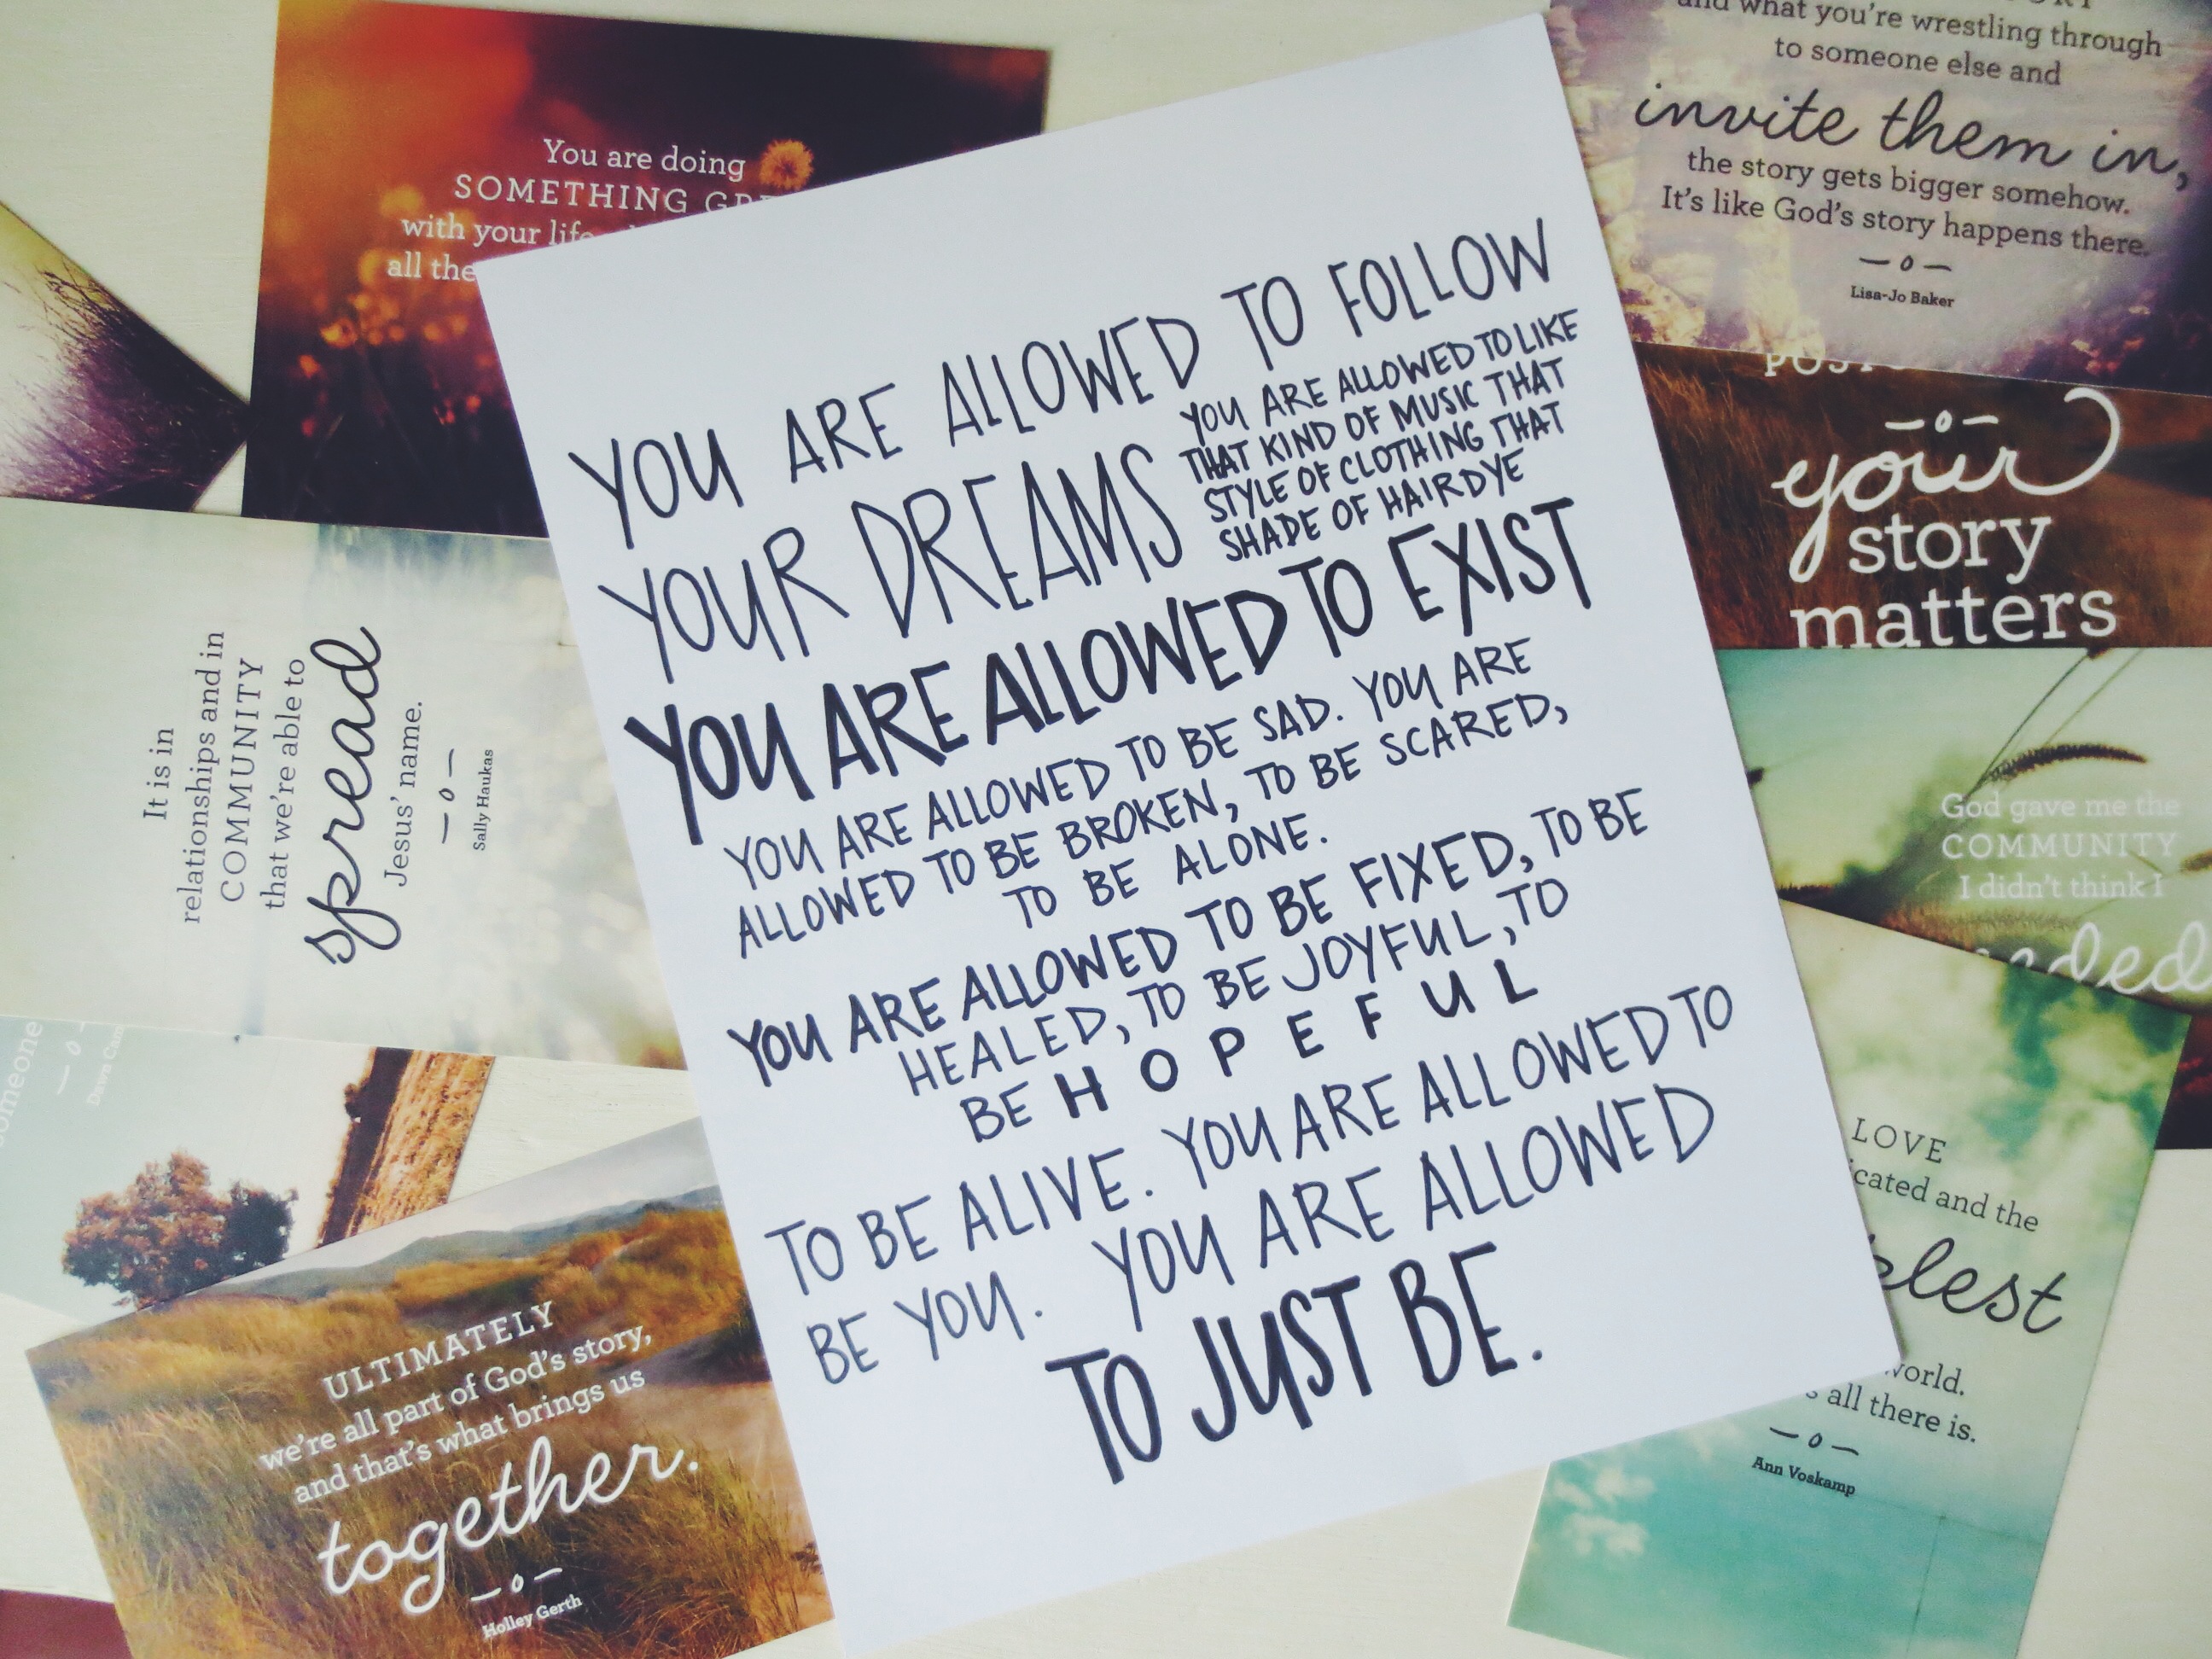 You are doing
SOMETHING
with your
all the
and what you're wrestling through
to someone else and
invite them in,
the story gets bigger somehow.
It's like God's story happens there.
Lisa-Jo Baker
your
story
matters
YOU ARE ALLOWED TO FOLLOW
YOUR DREAMS
YOU ARE ALLOWED TO LIKE
THAT KIND OF MUSIC THAT
STYLE OF CLOTHING THAT
SHADE OF HAIRDYE
YOU ARE ALLOWED TO EXIST
YOU ARE ALLOWED TO BE SAD. YOU ARE
ALLOWED TO BE BROKEN, TO BE SCARED,
TO BE ALONE.
YOU ARE ALLOWED TO BE FIXED, TO BE
HEALED, TO BE JOYFUL, TO
BE HOPEFUL
TO BE ALIVE. YOU ARE ALLOWED TO
BE YOU. YOU ARE ALLOWED
TO JUST BE.
It is in
relationships and in
COMMUNITY
that we're able to
spread
Jesus' name.
Sally Haukas
God gave me the
COMMUNITY
I didn't think I
LOVE
and the
all there is.
Ann Voskamp
Dawn
ULTIMATELY
we're all part of God's story,
and that's what brings us
together.
Holley Gerth